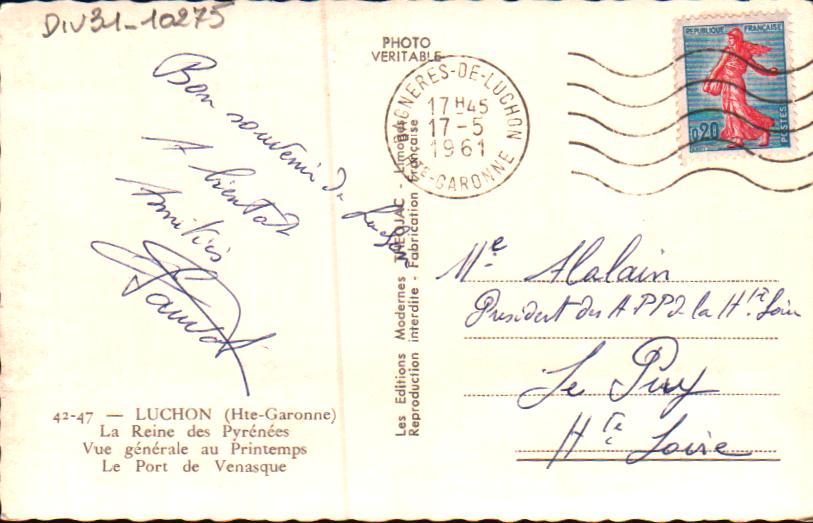 DIV31-10275
PHOTO
VERITABLE
Bon souvenir de Luchon
A bientot
Amitiés
42-47 — LUCHON (Hte-Garonne)
La Reine des Pyrénées
Vue générale au Printemps
Le Port de Venasque
Les Editions Modernes THEOJAC - Limoges
Reproduction interdite - Fabrication Française
BAGNERES-DE-LUCHON
17H45
17-5
1961
HTE-GARONNE
REPUBLIQUE FRANÇAISE
0,20
POSTES
Me Alalain
President des APP de la Hte Loire
Le Puy
Hte Loire